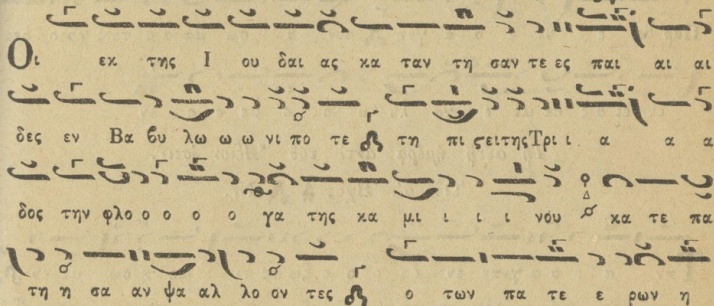 Οι εκ της Ι ου δαι ας κα ταν τη σαν τε ες παι αι αι
δες εν Βα βυ λω ω ω νι πο τε τη πι ςει της Τρι ι α α α
δος την φλο ο ο ο ο γα της κα μι ι ι ι νου κα τε πα
τη η σα αν ψα αλ λο ον τες ο των πα τε ε ρων η